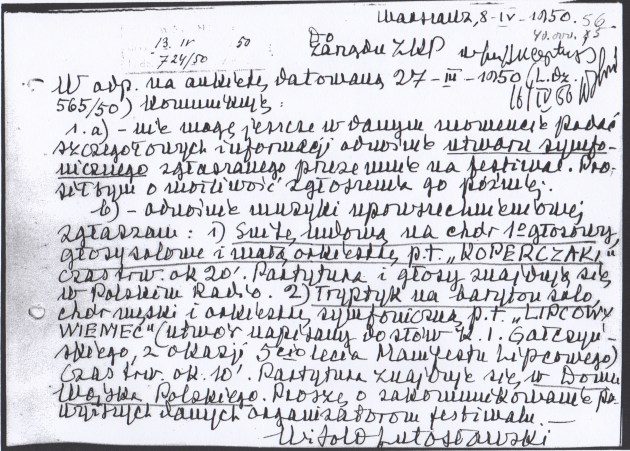 Warszawa, 8-IV-1950.
56
13. IV 50
724/50
Do
Zarządu ZKP
W odp. na ankietę datowaną 27-III-1950 (L.dz.
565/50) komunikuję:
1. a) - nie mogę jeszcze w danym momencie podać
szczegółowych informacji odnośnie utworu symfo-
nicznego zgłaszanego przeze mnie na festiwal. Pro-
siłbym o możliwość zgłoszenia go później.
b) - odnośnie muzyki upowszechnieniowej
zgłaszam: 1) Suitę ludową na chór 1o głosowy,
głosy solowe i małą orkiestrę p.t. „KOPERCZAKI"
czas trw. ok 20'. Partytura i głosy znajdują się
w Polskim Radio. 2) Tryptyk na baryton solo,
chór męski i orkiestrę symfoniczną p.t. „LIPCOWY
WIENIEC" (utwór napisany do słów K. I. Gałczyń-
skiego, z okazji 5ciolecia Manifestu Lipcowego)
Czas trw. ok. 10'. Partytura znajduje się w Domu
Wojska Polskiego. Proszę o zakomunikowanie po-
wyższych danych organizatorom festiwalu. -
Witold Lutosławski